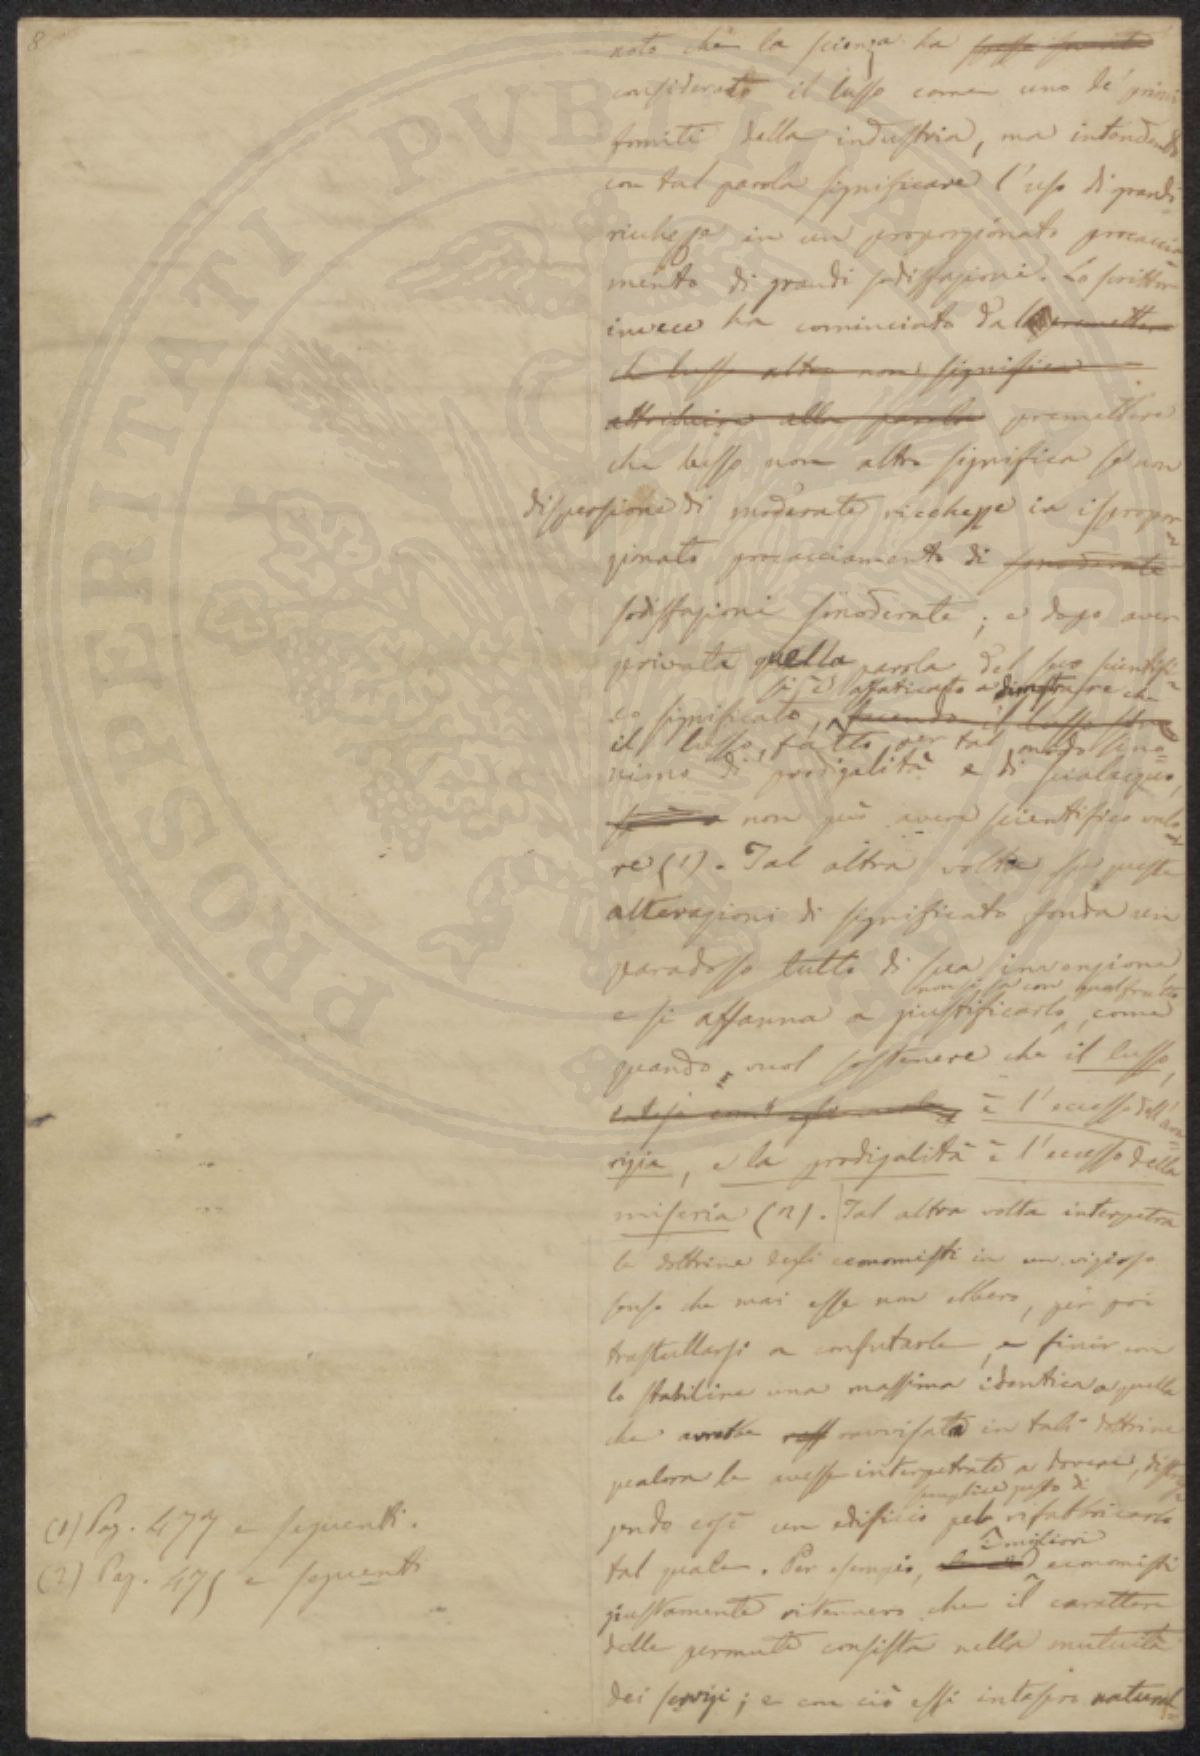 8
noto che la scienza ha spesse fiate
considerato il lusso come uno de' primi
fomiti della industria, ma intendendo
con tal parola significare l'uso di grandi
ricchezze in un proporzionato procaccia-
mento di grandi sodisfazioni. Lo scrittore
invece ha cominciato dal premettere
che lusso altro non significa
attribuire alla parola premettere
che lusso non altro significa se non
dispersione di moderate ricchezze in ispropor-
zionato procacciamento di smoderate
sodisfazioni smoderate; e dopo aver
privata quella parola del suo scientifi-
si è affaticato a dimostrare che
co significato, facendo il lusso
il lusso, fatto per tal modo sino-
nimo di prodigalità e di scialacquo,
non può avere scientifico valo-
re (1). Tal altra volta su queste
alterazioni di significato fonda un
paradosso tutto di sua invenzione
non si sa con qual frutto
e si affanna a giustificarlo, come
quando vuol sostenere che il lusso,
è l'eccesso dell'ava-
rizia, e la prodigalità è l'eccesso della
miseria (2). Tal altra volta interpetra
le dottrine degli economisti in un vizioso
senso che mai esse non ebbero, per poi
trastullarsi a confutarle, e finir con
lo stabilire una massima identica a quella
che avrebbe ravvisata in tali dottrine
qualora le avesse interpetrate a dovere, distrug-
semplice gusto di
gendo così un edificio pel rifabbricarlo
i migliori
tal quale. Per esempio, economisti
giustamente ritennero che il carattere
delle permute consista nella mutuità
dei servizi; e con ciò essi intesero natural-
(1) Pag. 477 e seguenti.
(2) Pag. 475 e seguenti
PROSPERITATI PUBLICAE